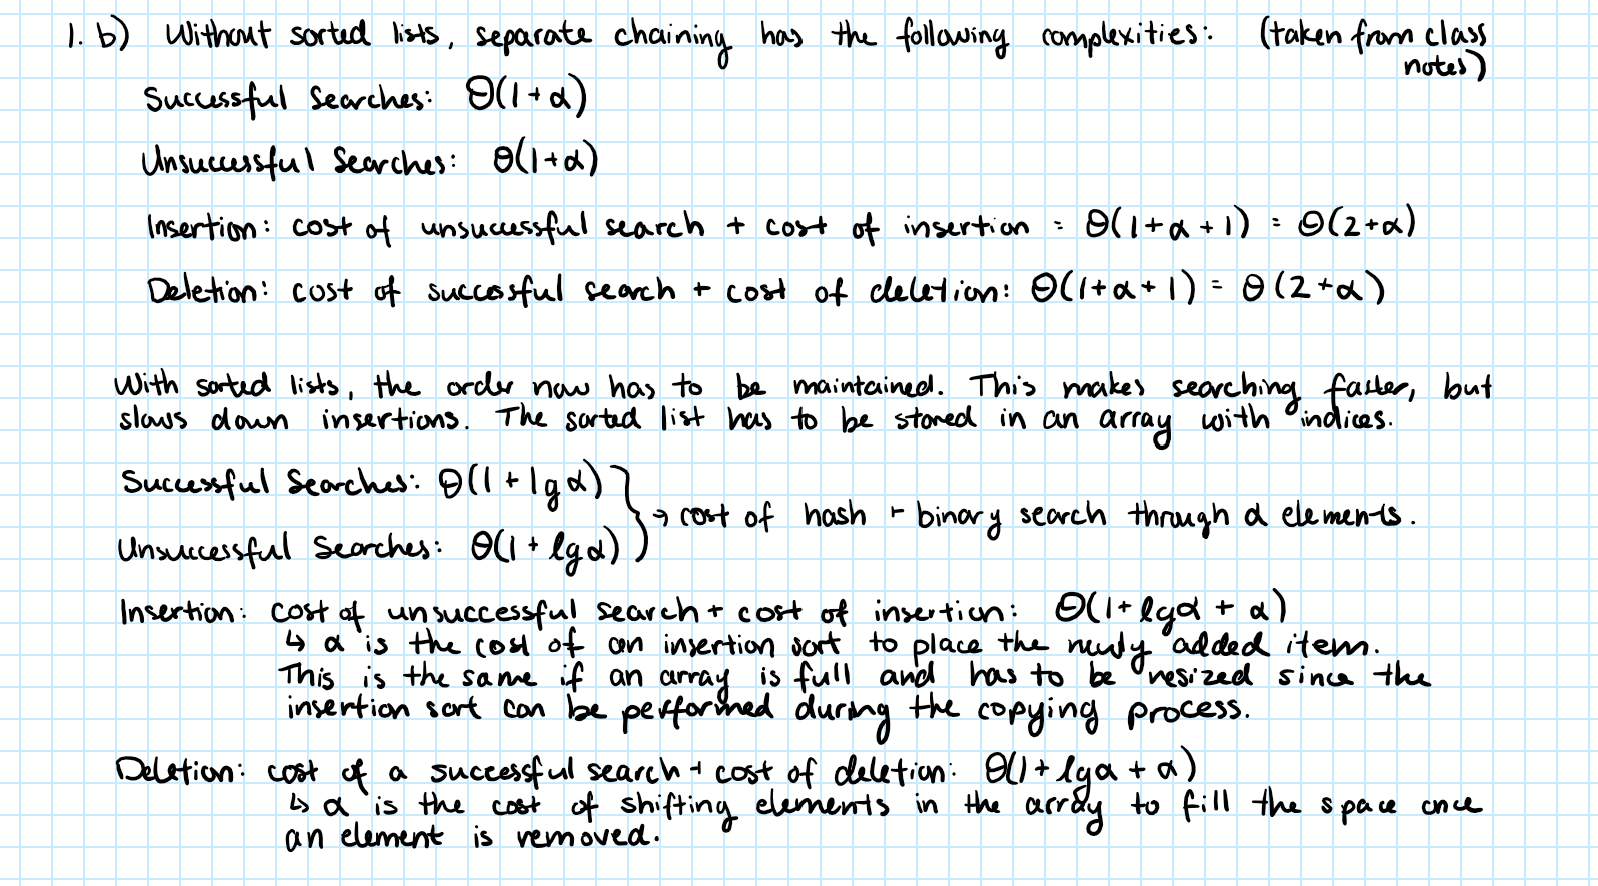 1. b) Without sorted lists, separate chaining has the following complexities: (taken from class
notes)
Successful Searches: Θ(1+α)
Unsuccessful Searches: Θ(1+α)
Insertion: cost of unsuccessful search + cost of insertion = Θ(1+α+1) = Θ(2+α)
Deletion: cost of successful search + cost of deletion: Θ(1+α+1) = Θ(2+α)
With sorted lists, the order now has to be maintained. This makes searching faster, but
slows down insertions. The sorted list has to be stored in an array with indices.
Successful Searches: Θ(1 + lg α)
→ cost of hash + binary search through α elements.
Unsuccessful Searches: Θ(1 + lg α)
Insertion: cost of unsuccessful search + cost of insertion: Θ(1+ lgα + α)
↳ α is the cost of an insertion sort to place the newly added item.
This is the same if an array is full and has to be resized since the
insertion sort can be performed during the copying process.
Deletion: cost of a successful search + cost of deletion: Θ(1+ lgα + α)
↳ α is the cost of shifting elements in the array to fill the space once
an element is removed.